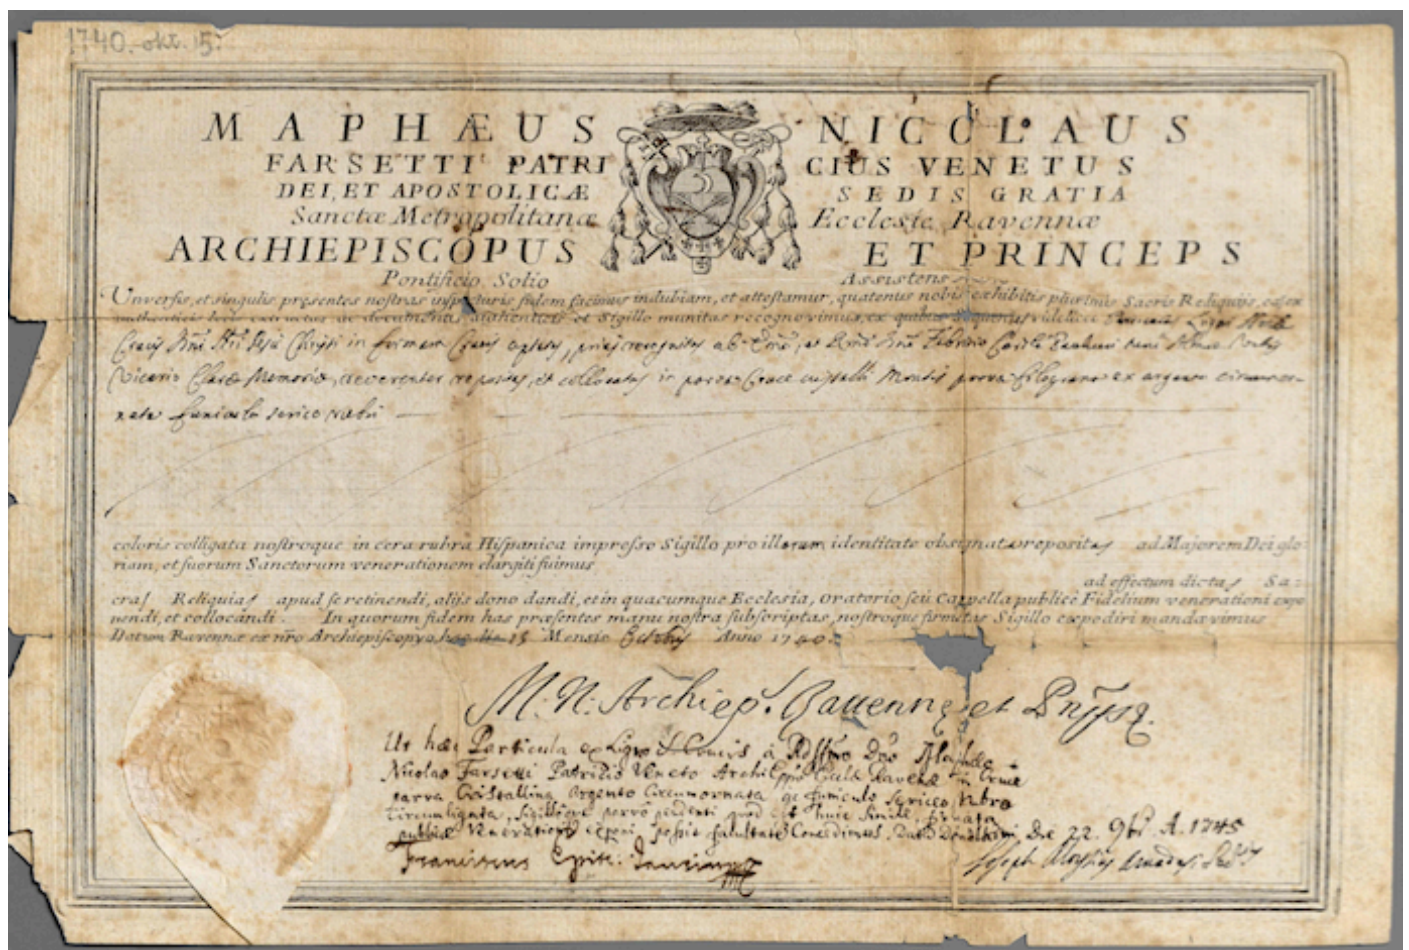 1740. okt. 15.
MAPHÆUS NICOLAUS
FARSETTI PATRICIUS VENETUS
DEI, ET APOSTOLICÆ SEDIS GRATIA
Sanctæ Metropolitanæ Ecclesiæ Ravennæ
ARCHIEPISCOPUS ET PRINCEPS
Pontificio Solio Assistens
Universis, et singulis præsentes nostras inspecturis fidem facimus indubiam, et attestamur, quatenus nobis exhibitis plurimis Sacris Reliquijs, eas ex
authenticis locis extractas ac documentis authenticis et Sigillo munitas recognovimus, ex quibus sequentes videlicet Ligni
Crucis Jesu Christi in formam Crucis aptatas, ab
Vicario Claræ Memoriæ, reverenter repositas, et collocatas in parva Cruce cristalli Montis filograna ex argento
funiculo serico rubri
coloris colligata nostroque in cera rubra Hispanica impresso Sigillo pro illarum identitate obsignat reposit ad Majorem Dei glo-
riam, et suorum Sanctorum venerationem elargiti fuimus
ad effectum dictas Sa-
cras Reliquias apud se retinendi, alijs dono dandi, et in quacumque Ecclesia, Oratorio seù Cappella publicè Fidelium venerationi expo-
nendi, et collocandi. In quorum fidem has præsentes manu nostra subscriptas, nostroque firmatas Sigillo expediri mandavimus
Datum Ravennæ ex nro Archiepiscopio, hac die 15 Mensis Octobris Anno 1740.
M. N. Archiep. Ravennæ et Pnps
Ut hæc Particula ex Ligno S. Crucis à Dno Maphæo
Nicolao Farsetti Patritio Veneto Archieppo Eccle Ravenæ in Cruce
parva Cristallina Argento Circumornata ac funiculo sericeo rubro
Circumligata, Sigilloque pendenti quod est huic simile, firmata
publicæ Venerationi exponi possit facultatem Concedimus. Die 22. 9bris A. 1745
Franciscus Joseph Aloysius Amadesi